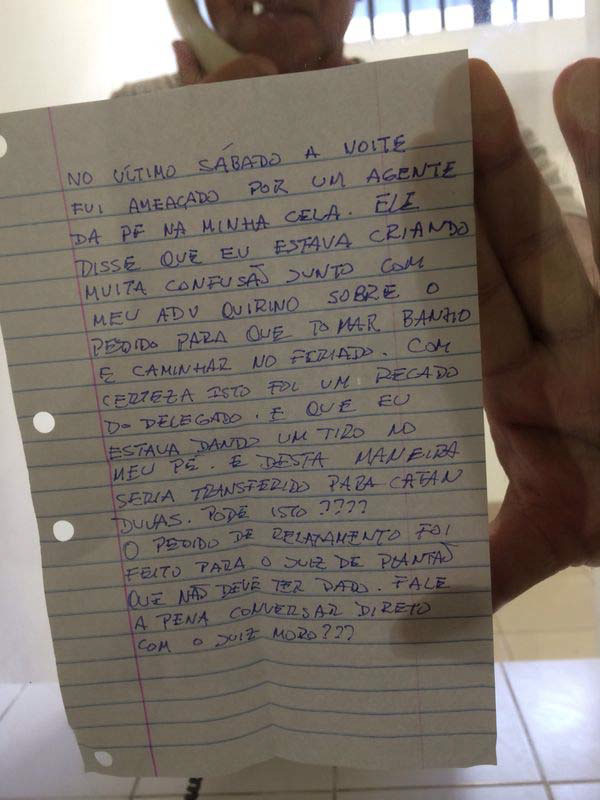 NO ULTIMO SÁBADO A NOITE
FUI AMEAÇADO POR UM AGENTE
DA PF NA MINHA CELA. ELE
DISSE QUE EU ESTAVA CRIANDO
MUITA CONFUSÃO JUNTO COM
MEU ADV QUIRINO SOBRE O
PEDIDO PARA QUE TOMAR BANHO
E CAMINHAR NO FERIADO. COM
CERTEZA ISTO FOI UM RECADO
DO DELEGADO. E QUE EU
ESTAVA DANDO UM TIRO NO
MEU PÉ. E DESTA MANEIRA
SERIA TRANSFERIDO PARA CATAN
DUVAS. PODE ISTO ????
O PEDIDO DE RELAXAMENTO FOI
FEITO PARA O JUIZ DE PLANTÃO
QUE NÃO DEVE TER DADO. VALE
A PENA CONVERSAR DIRETO
COM O JUIZ MORO???